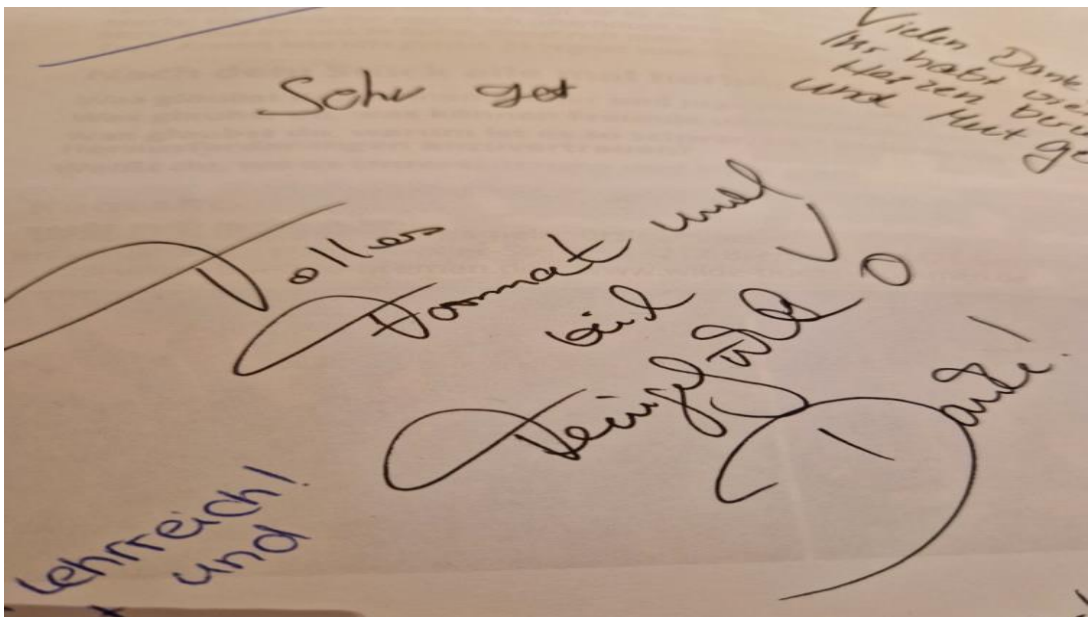 Sehr gut
Vielen Dank
Ihr habt
Herzen
und Mut
Tolles
Format und
viel
Feingefühl
Danke!
Lehrreich!
und